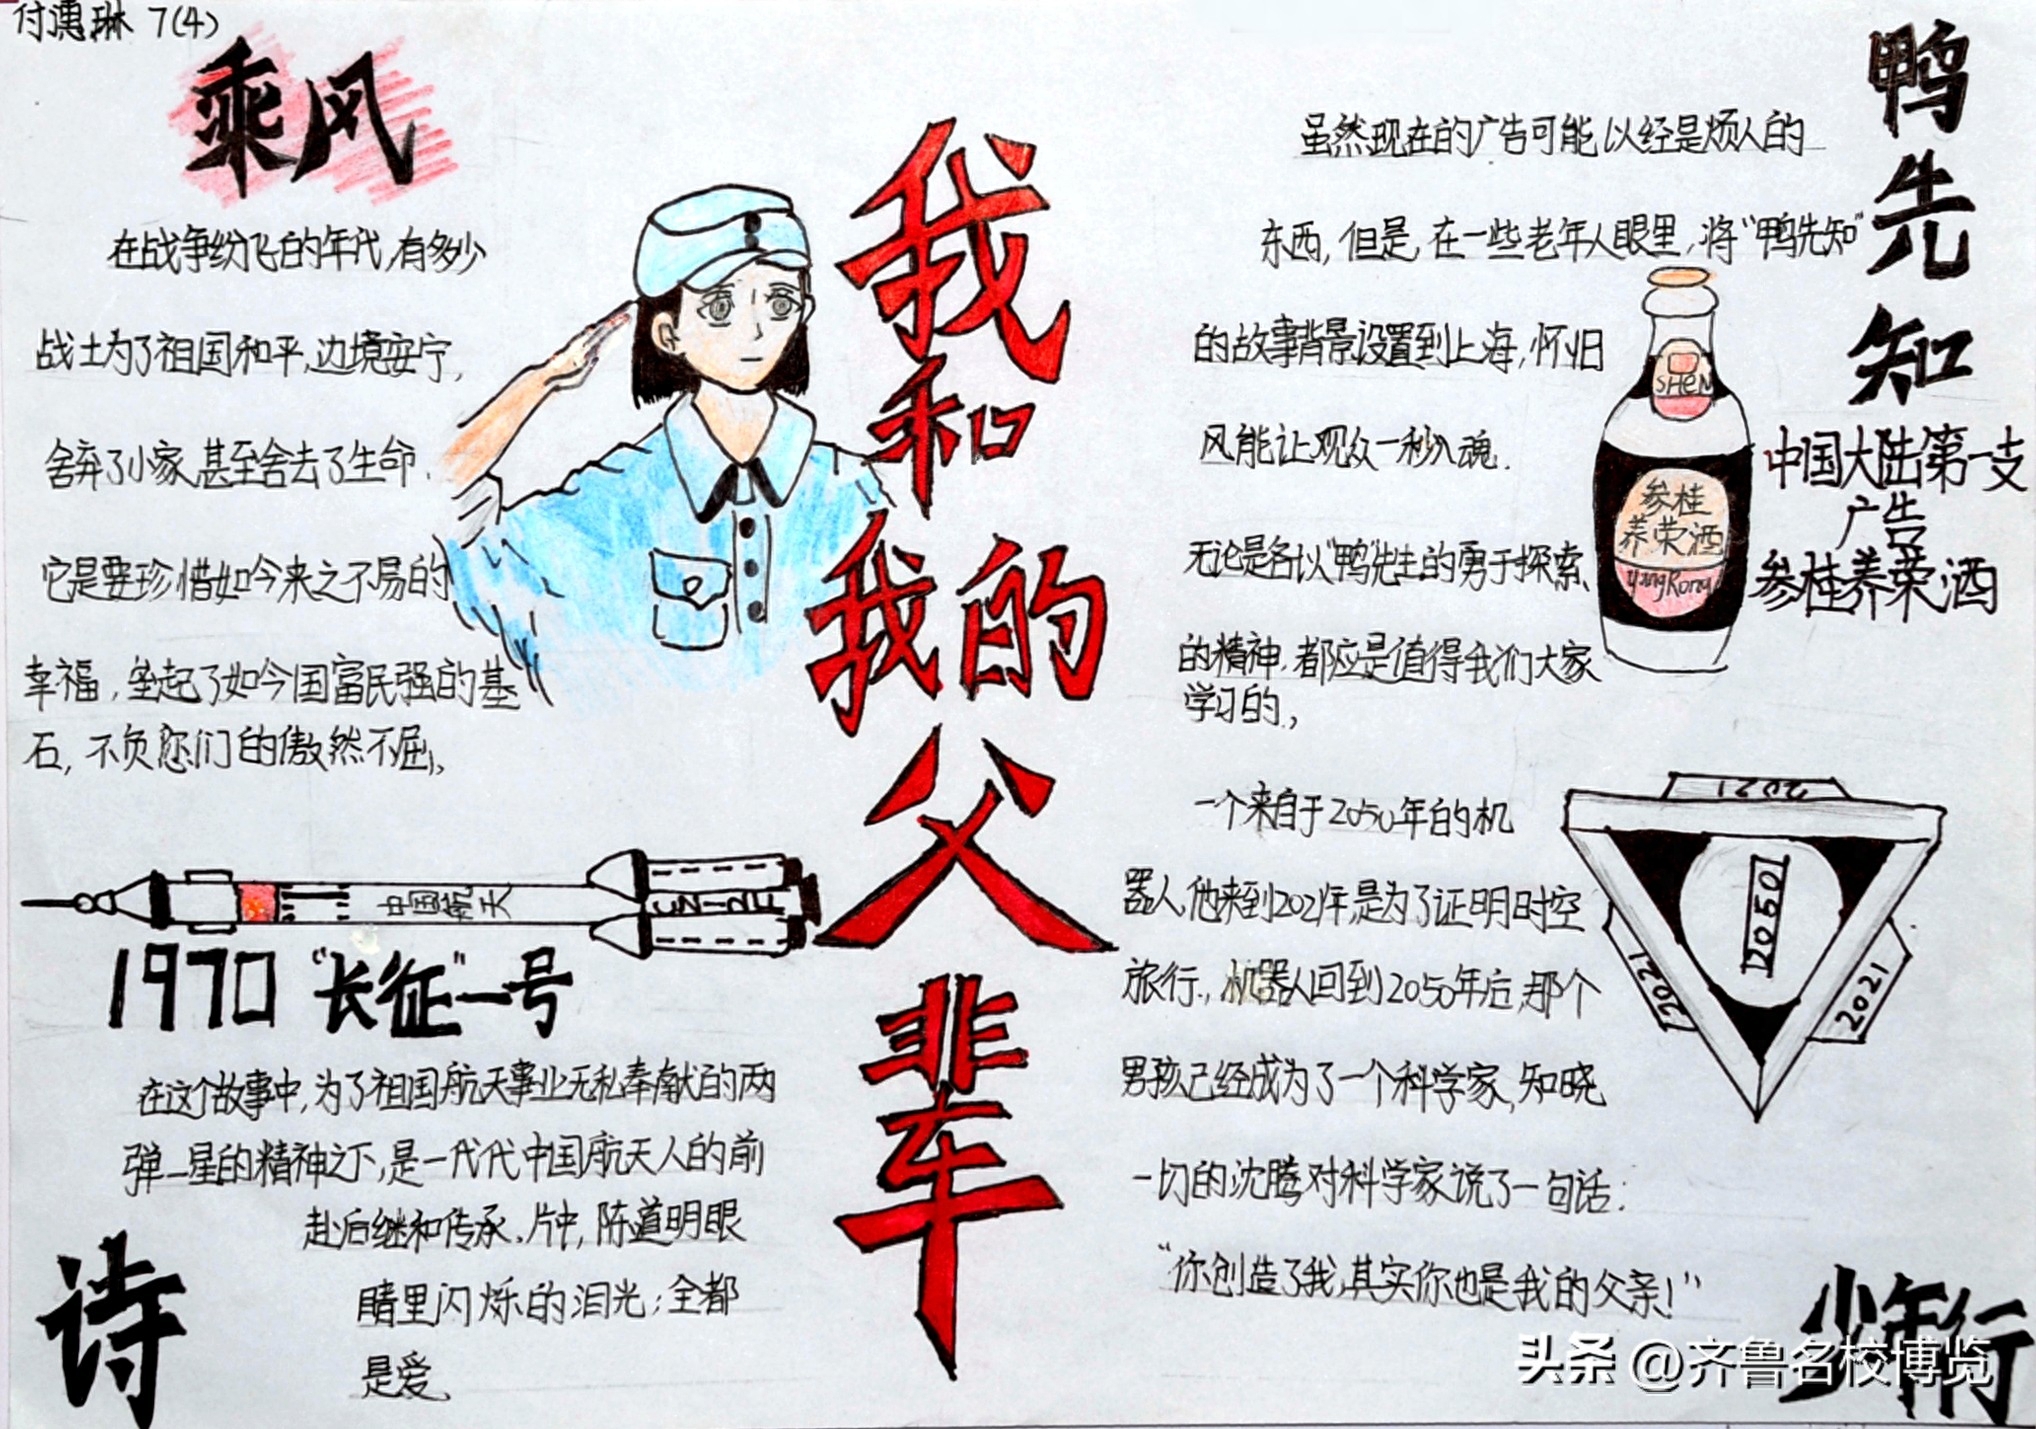 付惠琳 7(4)
乘风
在战争纷飞的年代,有多少
战士为了祖国和平,边境安宁,
舍弃了小家,甚至舍去了生命.
它是要珍惜如今来之不易的
幸福,垒起了如今国富民强的基
石,不负您们的傲然不屈。
我和我的父辈
鸭先知
虽然现在的广告可能以经是烦人的
东西,但是,在一些老年人眼里,将"鸭先知"
的故事背景设置到上海,怀旧
风能让观众一秒入魂.
无论是各以"鸭"先生的勇于探索、
的精神,都应是值得我们大家
学习的。
SHEN
参桂
养荣酒
YangRong
中国大陆第一支
广告
参桂养荣酒
中国航天
1970"长征"一号
在这个故事中,为了祖国航天事业无私奉献的两
弹一星的精神之下,是一代代中国航天人的前
赴后继和传承.片中,陈道明眼
睛里闪烁的泪光;全都
是爱.
诗
一个来自于2050年的机
器人,他来到2021年,是为了证明时空
旅行.,机器人回到2050年后,那个
男孩已经成为了一个科学家,知晓
一切的沈腾对科学家说了一句话:
"你创造了我,其实你也是我的父亲!"
2021
2050
2021
2021
少年行
头条 @齐鲁名校博览